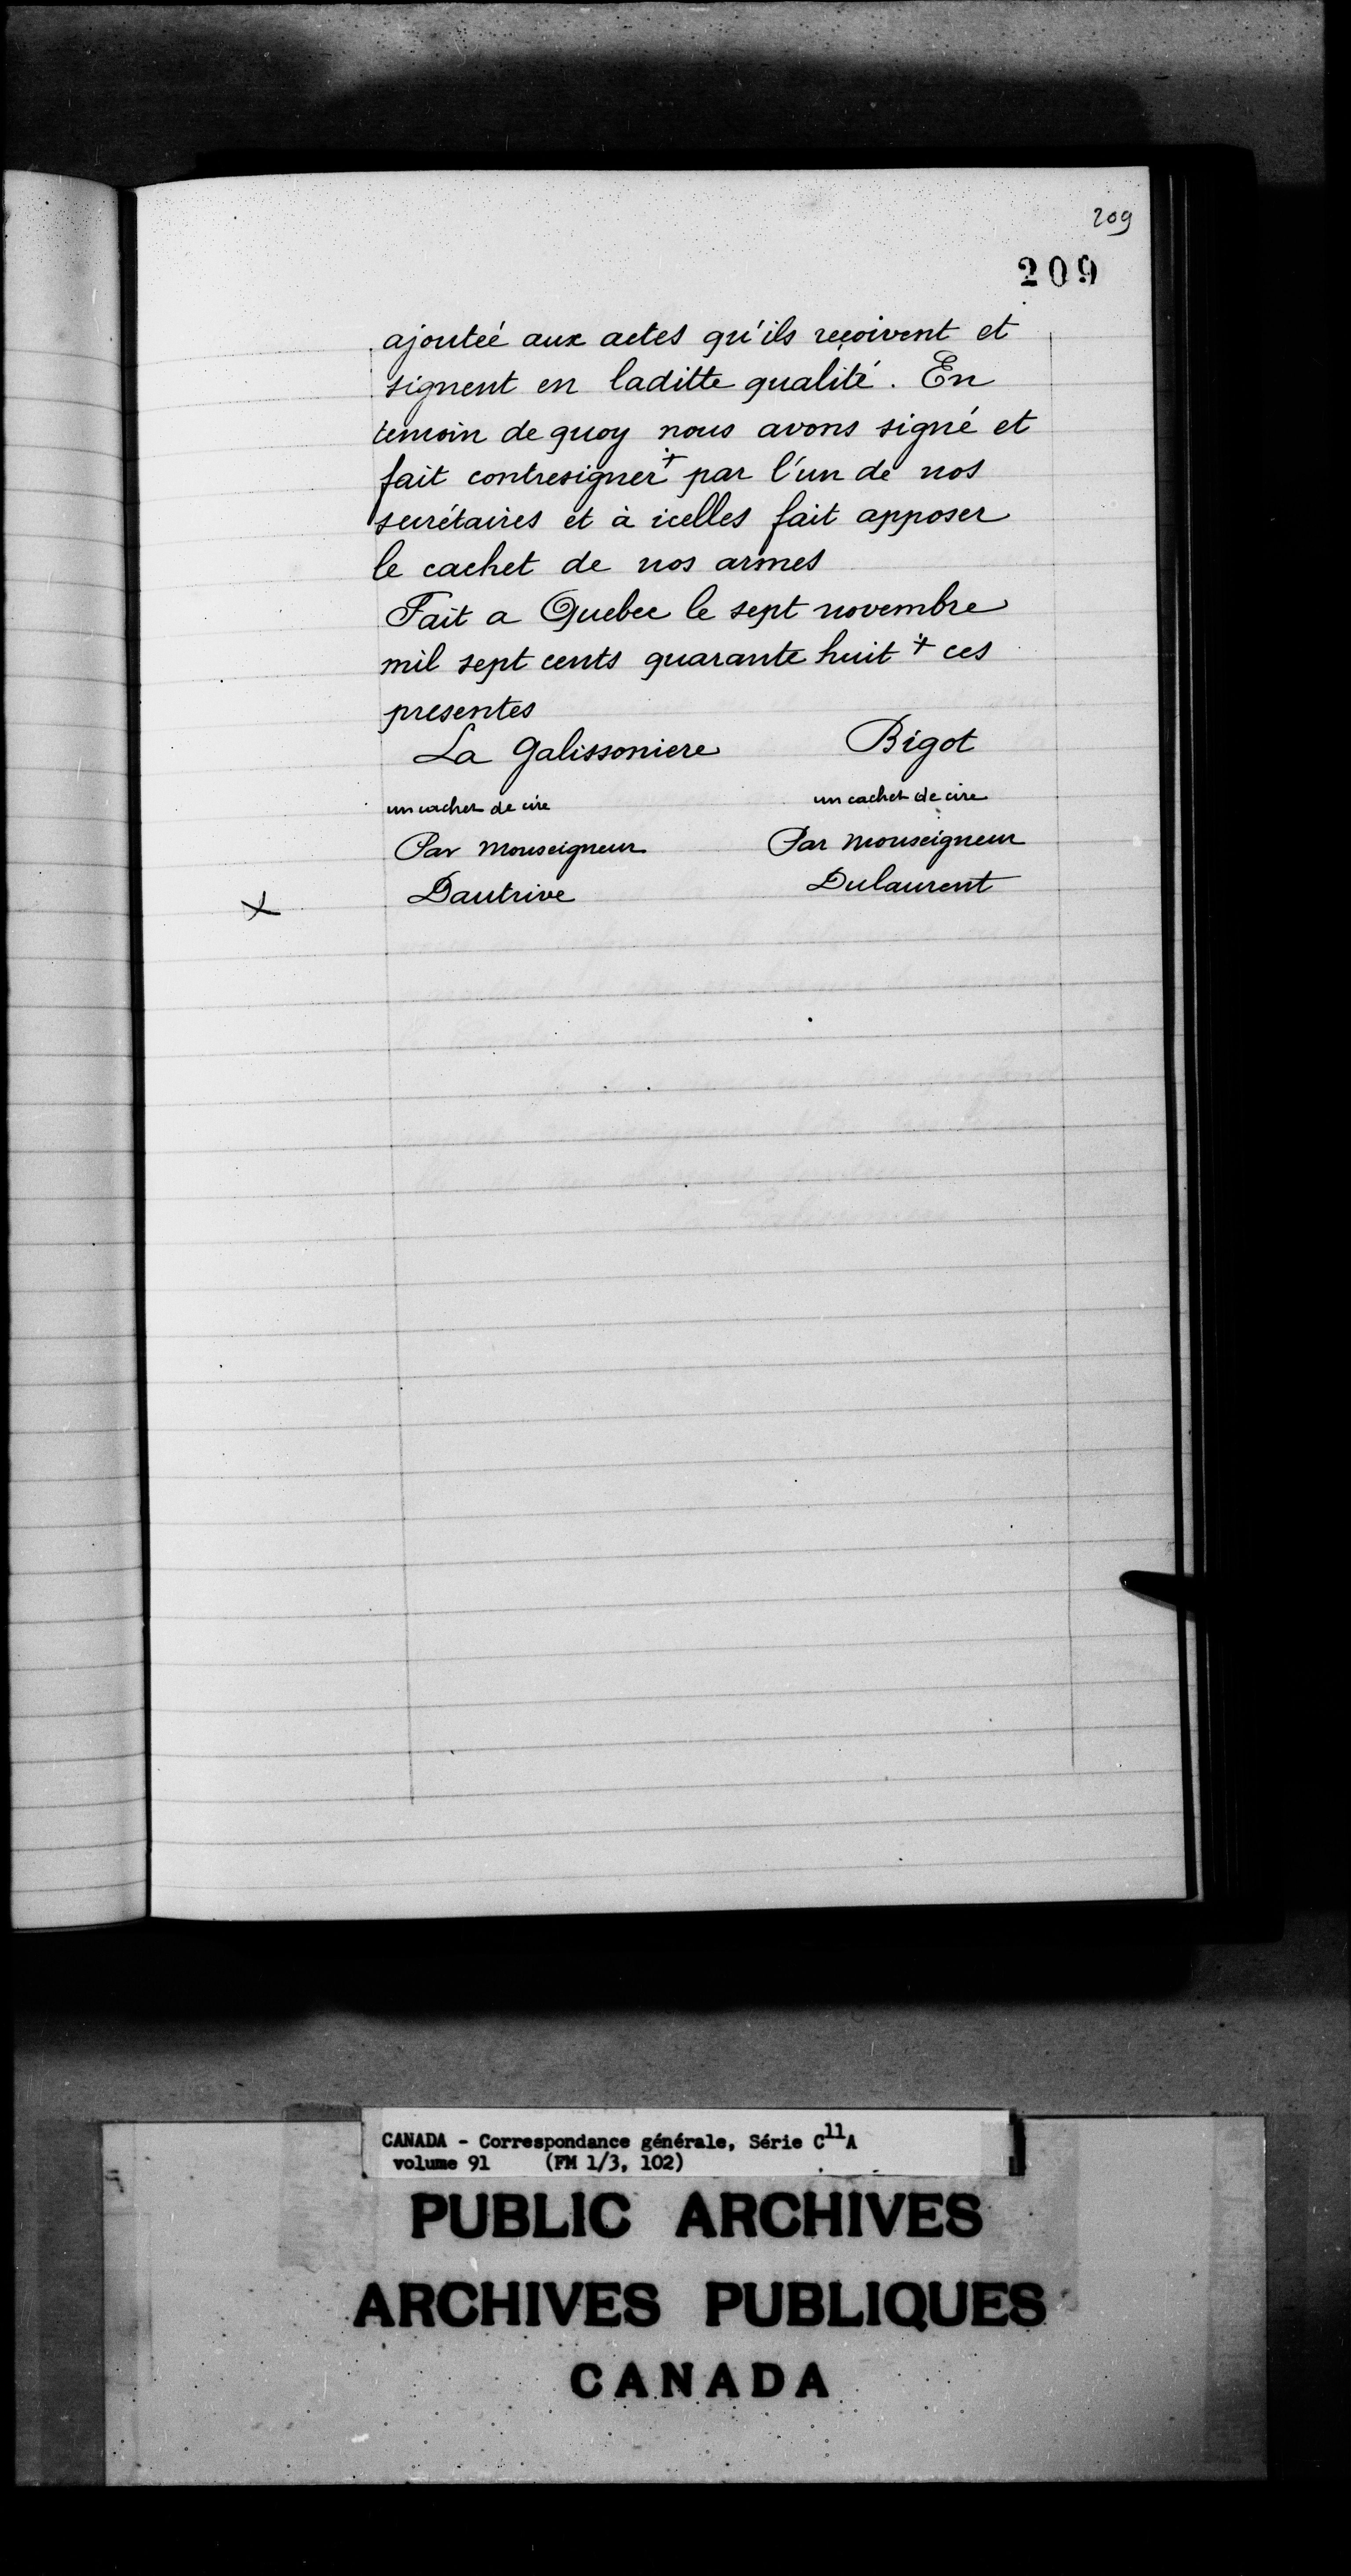 209
209
ajouteé aux actes qu'ils reçoivent et
signent en laditte qualité. En
temoin de quoy nous avons signé et
fait contresigner + par l'un de nos
secrétaires et à icelles fait apposer
le cachet de nos armes
Fait a Quebec le sept novembre
mil sept cents quarante huit + ces
presentes
La Galissoniere Bigot
un cachet de cire un cachet de cire
Par Monseigneur Par Monseigneur
Dautrive Dulaurent
x
CANADA - Correspondance générale, Série C11A
volume 91 (FM 1/3, 102)
PUBLIC ARCHIVES
ARCHIVES PUBLIQUES
CANADA